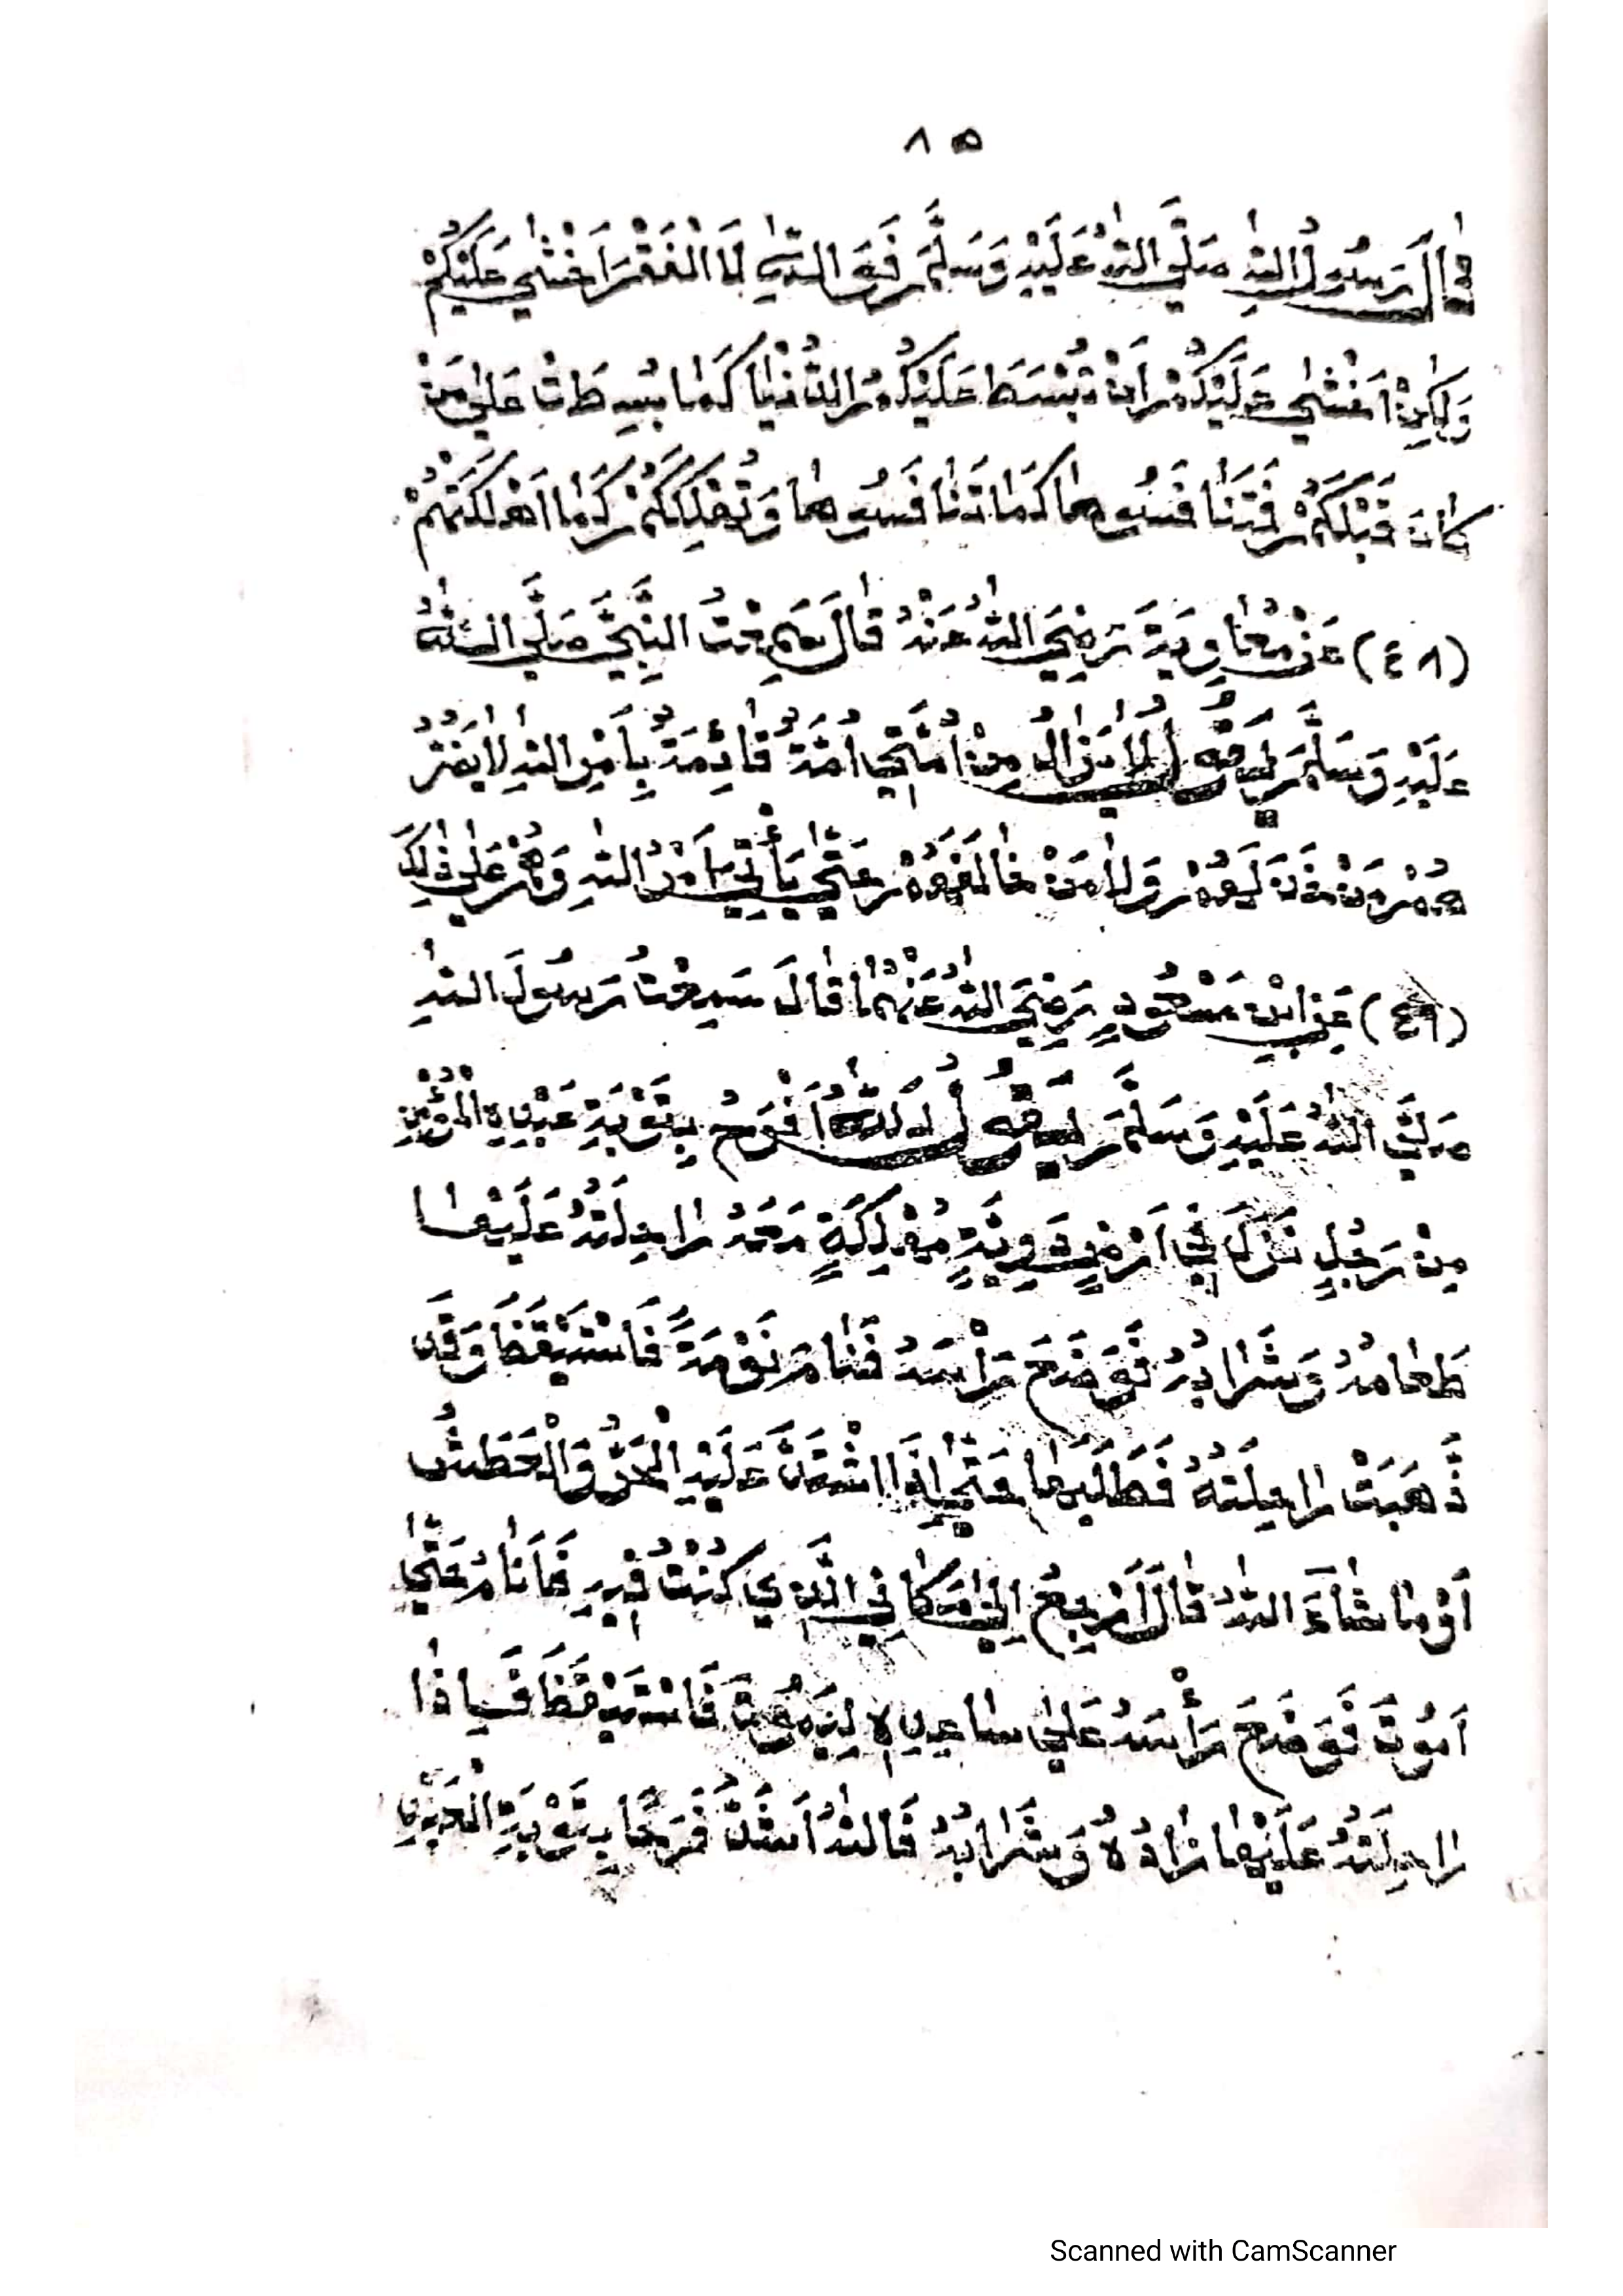 ٨٥
قَالَ رَسُولُ اللهِ صَلَّى اللهُ عَلَيْهِ وَسَلَّمَ فَوَ اللهِ لَا الْفَقْرَ اَخْشٰى عَلَيْكُمْ
وَلٰكِنْ اَخْشٰى عَلَيْكُمْ اَنْ تُبْسَطَ عَلَيْكُمُ الدُّنْيَا كَمَا بُسِطَتْ عَلٰى مَنْ
كَانَ قَبْلَكُمْ فَتَنَافَسُوهَا كَمَا تَنَافَسُوهَا وَتُهْلِكَكُمْ كَمَا اَهْلَكَتْهُمْ
(٤٨) عَنْ مُعَاوِيَةَ رَضِيَ اللهُ عَنْهُ قَالَ سَمِعْتُ النَّبِيَّ صَلَّى اللهُ
عَلَيْهِ وَسَلَّمَ يَقُولُ لَا يَزَالُ مِنْ اُمَّتِي اُمَّةٌ قَائِمَةٌ بِاَمْرِ اللهِ لَا يَضُرُّ
هُمْ مَنْ خَذَلَهُمْ وَلَا مَنْ خَالَفَهُمْ حَتّٰى يَأْتِيَ اَمْرُ اللهِ وَهُمْ عَلٰى ذٰلِكَ
(٤٩) عَنِ ابْنِ مَسْعُودٍ رَضِيَ اللهُ عَنْهُمَا قَالَ سَمِعْتُ رَسُولَ اللهِ
صَلَّى اللهُ عَلَيْهِ وَسَلَّمَ يَقُولُ لَلّٰهُ اَفْرَحُ بِتَوْبَةِ عَبْدِهِ الْمُؤْمِنِ
مِنْ رَجُلٍ نَزَلَ فِي اَرْضٍ دَوِيَّةٍ مُهْلِكَةٍ مَعَهُ رَاحِلَتُهُ عَلَيْهَا
طَعَامُهُ وَشَرَابُهُ فَوَضَعَ رَأْسَهُ فَنَامَ نَوْمَةً فَاسْتَيْقَظَ وَقَدْ
ذَهَبَتْ رَاحِلَتُهُ فَطَلَبَهَا حَتّٰى اِذَا اشْتَدَّ عَلَيْهِ الْحَرُّ وَالْعَطَشُ
اَوْ مَا شَاءَ اللهُ قَالَ اَرْجِعُ اِلٰى مَكَانِي الَّذِي كُنْتُ فِيهِ فَاَنَامُ حَتّٰى
اَمُوتَ فَوَضَعَ رَأْسَهُ عَلٰى سَاعِدِهِ لِيَمُوتَ فَاسْتَيْقَظَ فَاِذَا
رَاحِلَتُهُ عَلَيْهَا زَادُهُ وَشَرَابُهُ فَاللهُ اَشَدُّ فَرَحًا بِتَوْبَةِ الْعَبْدِ
Scanned with CamScanner